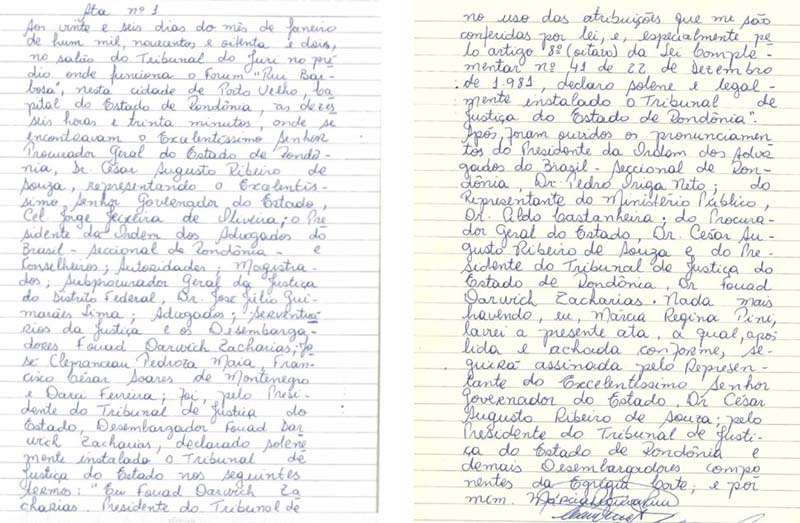 Ata nº 1
Aos vinte e seis dias do mês de janeiro
de hum mil, novecentos e oitenta e dois,
no salão do Tribunal do Juri no pré-
dio onde funciona o Fórum "Rui Bar-
bosa", nesta cidade de Porto Velho, Ca-
pital do Estado de Rondônia, as dezes-
seis horas e trinta minutos, onde se
encontravam o Excelentíssimo Senhor
Procurador Geral do Estado de Rondô-
nia, Dr. César Augusto Ribeiro de
Souza, representando o Excelentís-
simo Senhor Governador do Estado,
Cel Jorge Teixeira de Oliveira; o Pre-
sidente da Ordem dos Advogados do
Brasil - Seccional de Rondônia - e
Conselheiros; Autoridades; Magistra-
dos; Subprocurador Geral da Justiça
do Distrito Federal, Dr. José Júlio Gui-
marães Lima; Advogados; Serventuá-
rios da Justiça e os Desembarga-
dores Fouad Darwich Zacharias; Jo-
sé Clemanceau Pedroza Maia, Fran-
cisco César Soares de Montenegro
e Darci Ferreira; foi, pelo Presi-
dente do Tribunal de Justiça do
Estado, Desembargador Fouad Dar
wich Zacharias, declarado solene
mente instalado o Tribunal de
Justiça do Estado nos seguintes
termos: "Eu Fouad Darwich Za
charias. Presidente do Tribunal de
no uso das atribuições que me são
conferidas por lei, e, especialmente pe-
lo artigo 8º (oitavo) da Lei Comple-
mentar nº 41 de 22 de Dezembro
de 1.981, declaro solene e legal-
mente instalado o Tribunal de
Justiça do Estado de Rondônia".
Após, foram ouvidos os pronunciamen-
tos do Presidente da Ordem dos Advo-
gados do Brasil - Seccional de Ron-
dônia, Dr. Pedro Origa Neto; do
Representante do Ministério Público,
Dr. Aldo Castanheira; do Procura-
dor Geral do Estado, Dr. César Au-
gusto Ribeiro de Souza e do Pre-
sidente do Tribunal de Justiça do
Estado de Rondônia, Dr Fouad
Darwich Zacharias. Nada mais
havendo, eu, Márcia Regina Pini,
lavrei a presente ata, a qual, após
lida e achada conforme, se-
guirá assinada pelo Represen-
tante do Excelentíssimo Senhor
Governador do Estado, Dr César
Augusto Ribeiro de Souza; pelo
Presidente do Tribunal de Justi-
ça do Estado de Rondônia e
demais Desembargadores compo-
nentes da Egrégia Corte; e por
mim.